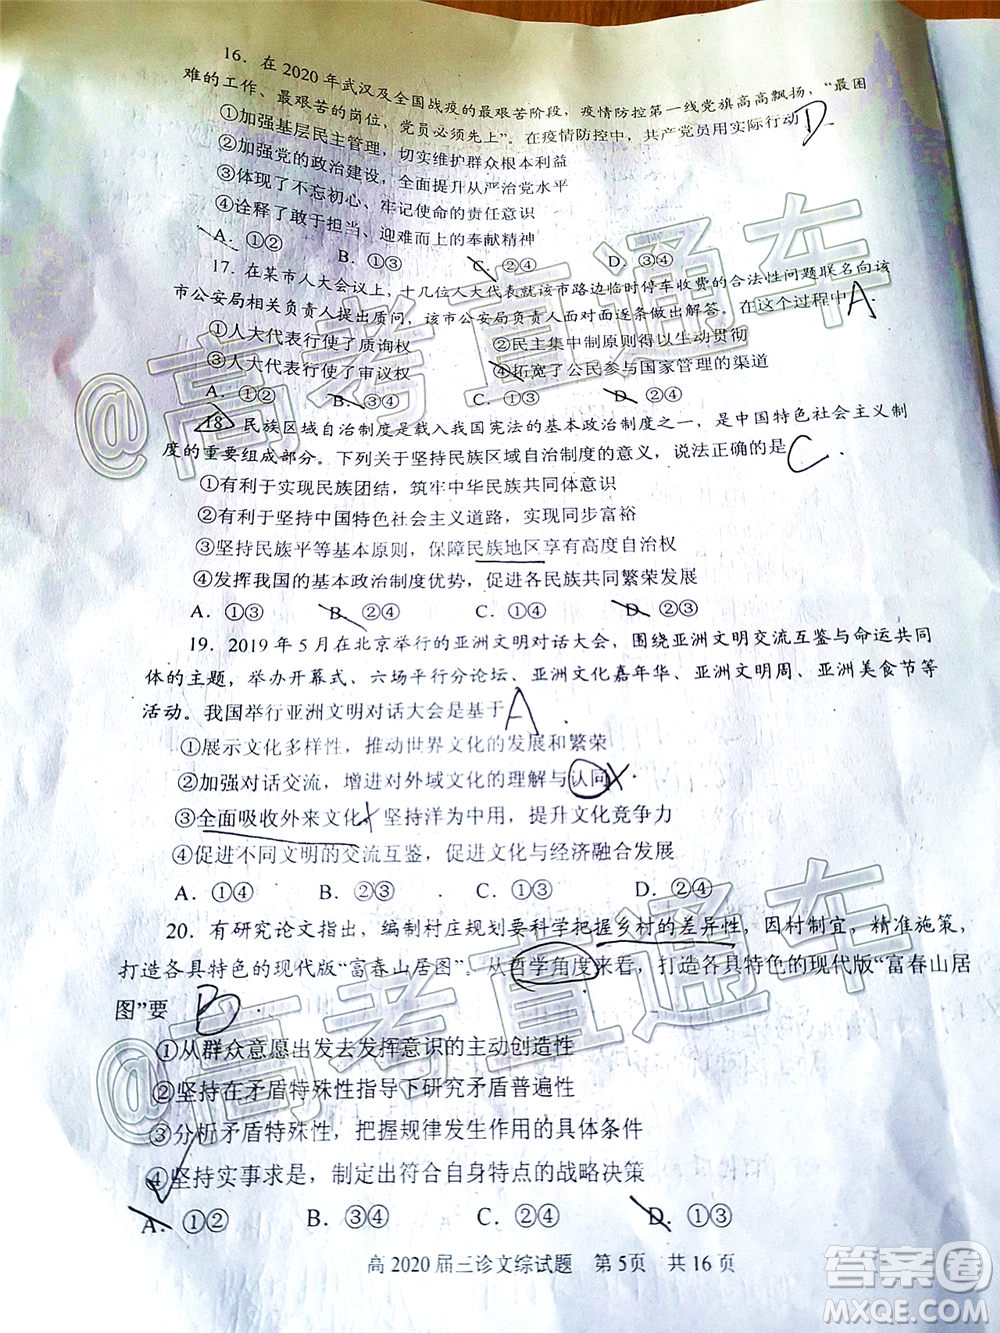 16．在2020年武汉及全国战疫的最艰苦阶段，疫情防控第一线党旗高高飘扬，“最困
难的工作、最艰苦的岗位，党员必须先上”。在疫情防控中，共产党员用实际行动 D
①加强基层民主管理，切实维护群众根本利益
②加强党的政治建设，全面提升从严治党水平
③体现了不忘初心、牢记使命的责任意识
④诠释了敢于担当、迎难而上的奉献精神
A．①② B．①③ C．②④ D．③④
17．在某市人大会议上，十几位人大代表就该市路边临时停车收费的合法性问题联名向该
市公安局相关负责人提出质问，该市公安局负责人面对面逐条做出解答。在这个过程中 A
①人大代表行使了质询权 ②民主集中制原则得以生动贯彻
③人大代表行使了审议权 ④拓宽了公民参与国家管理的渠道
A．①② B．③④ C．①③ D．②④
18．民族区域自治制度是载入我国宪法的基本政治制度之一，是中国特色社会主义制
度的重要组成部分。下列关于坚持民族区域自治制度的意义，说法正确的是 C
①有利于实现民族团结，筑牢中华民族共同体意识
②有利于坚持中国特色社会主义道路，实现同步富裕
③坚持民族平等基本原则，保障民族地区享有高度自治权
④发挥我国的基本政治制度优势，促进各民族共同繁荣发展
A．①③ B．②④ C．①④ D．②③
19．2019年5月在北京举行的亚洲文明对话大会，围绕亚洲文明交流互鉴与命运共同
体的主题，举办开幕式、六场平行分论坛、亚洲文化嘉年华、亚洲文明周、亚洲美食节等
活动。我国举行亚洲文明对话大会是基于 A
①展示文化多样性，推动世界文化的发展和繁荣
②加强对话交流，增进对外域文化的理解与认同
③全面吸收外来文化，坚持洋为中用，提升文化竞争力
④促进不同文明的交流互鉴，促进文化与经济融合发展
A．①④ B．②③ C．①③ D．②④
20．有研究论文指出，编制村庄规划要科学把握乡村的差异性，因村制宜，精准施策，
打造各具特色的现代版“富春山居图”。从哲学角度来看，打造各具特色的现代版“富春山居
图”要 B
①从群众意愿出发去发挥意识的主动创造性
②坚持在矛盾特殊性指导下研究矛盾普遍性
③分析矛盾特殊性，把握规律发生作用的具体条件
④坚持实事求是，制定出符合自身特点的战略决策
A．①② B．③④ C．②④ D．①③
高2020届三诊文综试题 第5页 共16页
@高考直通车
@高考直通车
答案圈
MXQE.COM